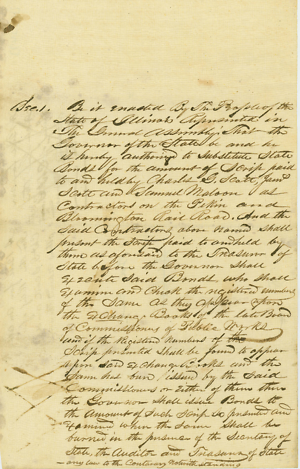 Sec. 1. Be it enacted By The People of the
State of Illinois Represented in
The General Assembly, That the
Governor of the State be and he
is hereby authorized to Substitute State
Bonds for the amount of Scrip paid
to and held by Charles G.
Scott and Samuel Malone as
Contractors on the Pekin and
Bloomington Rail Road. And the
Said Contractors above named shall
present the Scrip paid to and held by
them as aforesaid to the Treasurer of
State before the Governor shall
Execute Said Bonds who shall
Examine and Check the registered numbers
of the Same as they appear upon
the Exchange Books of the late Board
of Commissioners of Public Works
and if the Registered numbers of the
Scrip presented shall be found to appear
upon said Exchange Books and the
Same has been issued by the Said
Commissioners or either of them then
the Governor shall issue Bonds to
the Amount of Such Scrip So presented and
Examined when the Same Shall be
burned in the presence of the Secretary of
State, the Auditor and Treasurer of State
any law to the Contrary Notwithstanding